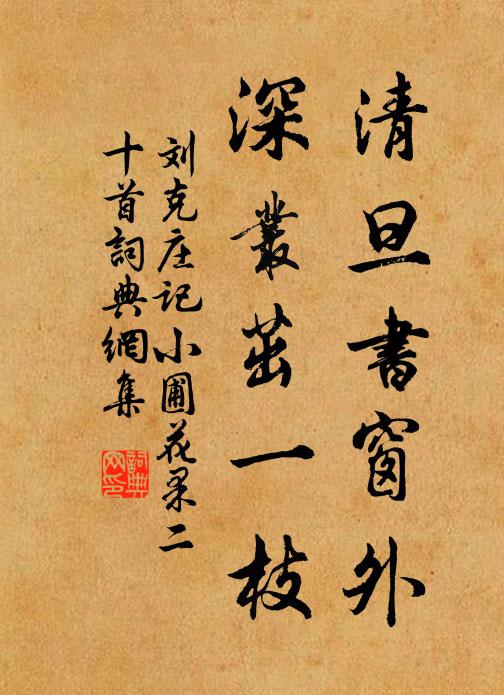 清旦書窗外
深叢茁一枝
刘克庄记小圃花果二
十首詞典網集
詞典網印